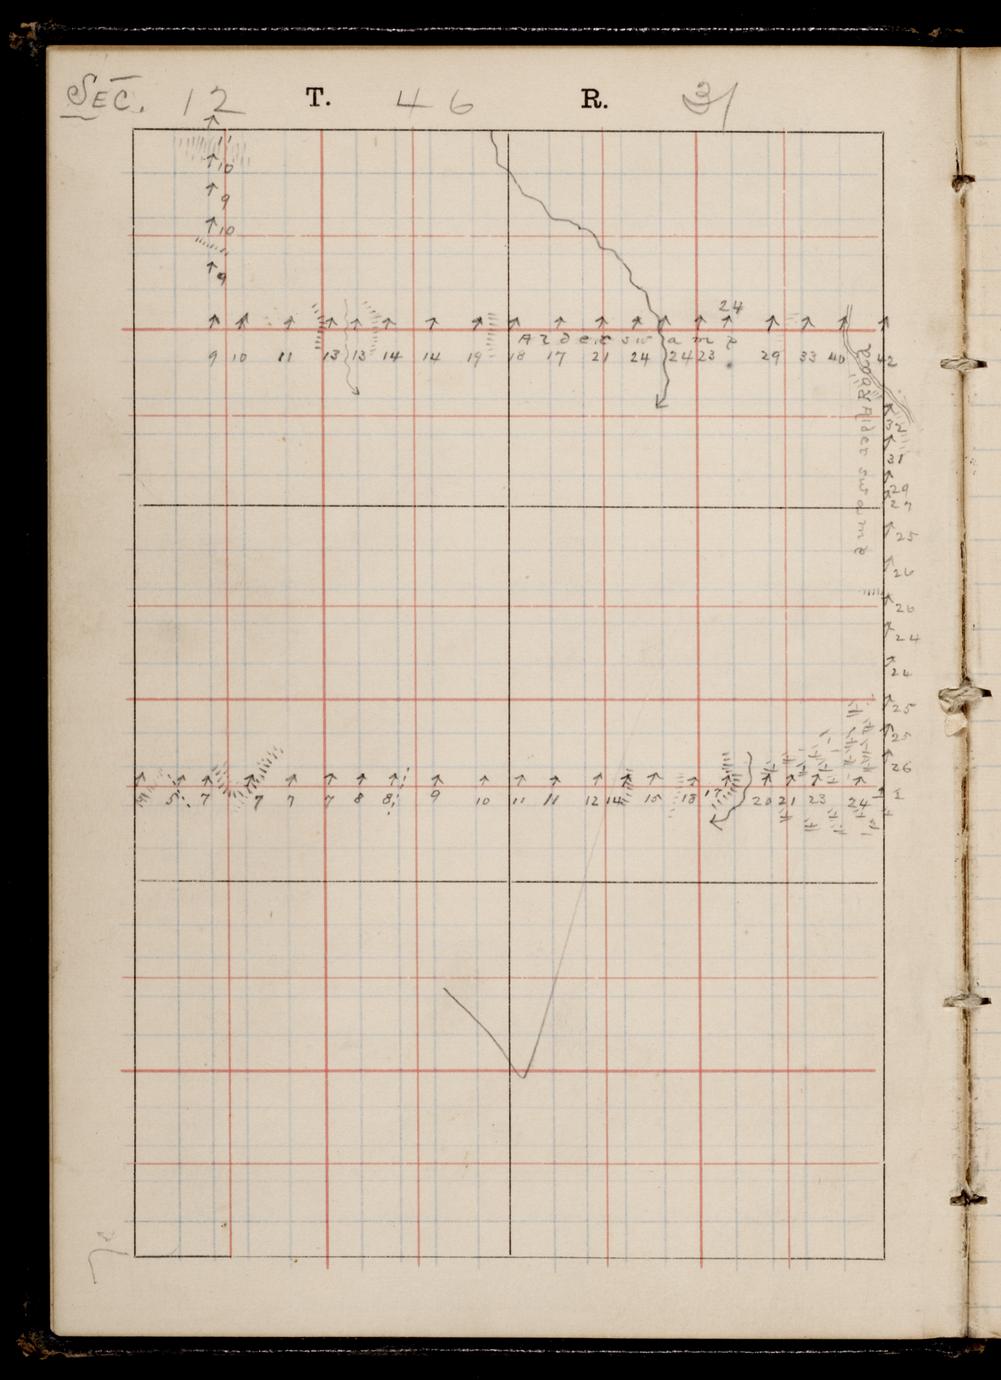 SEC. 12 T. 46 R. 31
11
10
9
10
9
24
Alder swamp
9 10 11 13 13 14 14 19 18 17 21 24 24 23 29 33 40 42
Road
Alder swamp
32
31
29
27
25
26
26
24
24
25
25
26
5 7 7 7 7 8 8 9 10 11 11 12 14 15 18 17 20 21 23 24